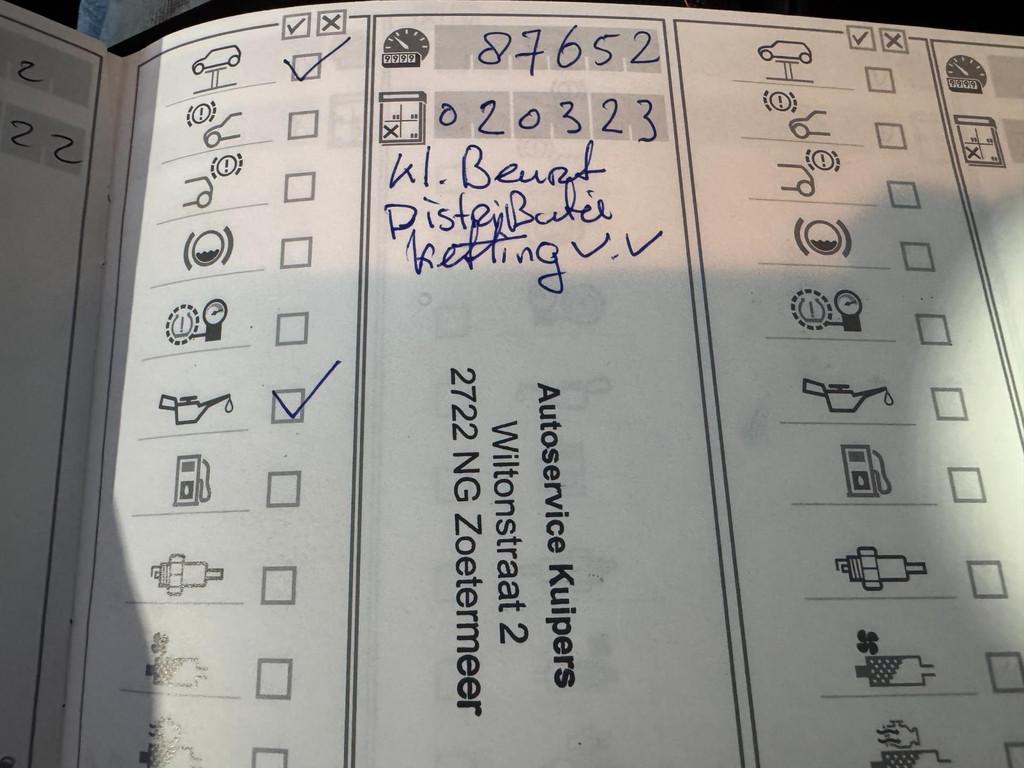 2
22
87652
9999
020323
Kl. Beurt
Distributie
ketting v.v
Autoservice Kuipers
Wiltonstraat 2
2722 NG Zoetermeer
9999